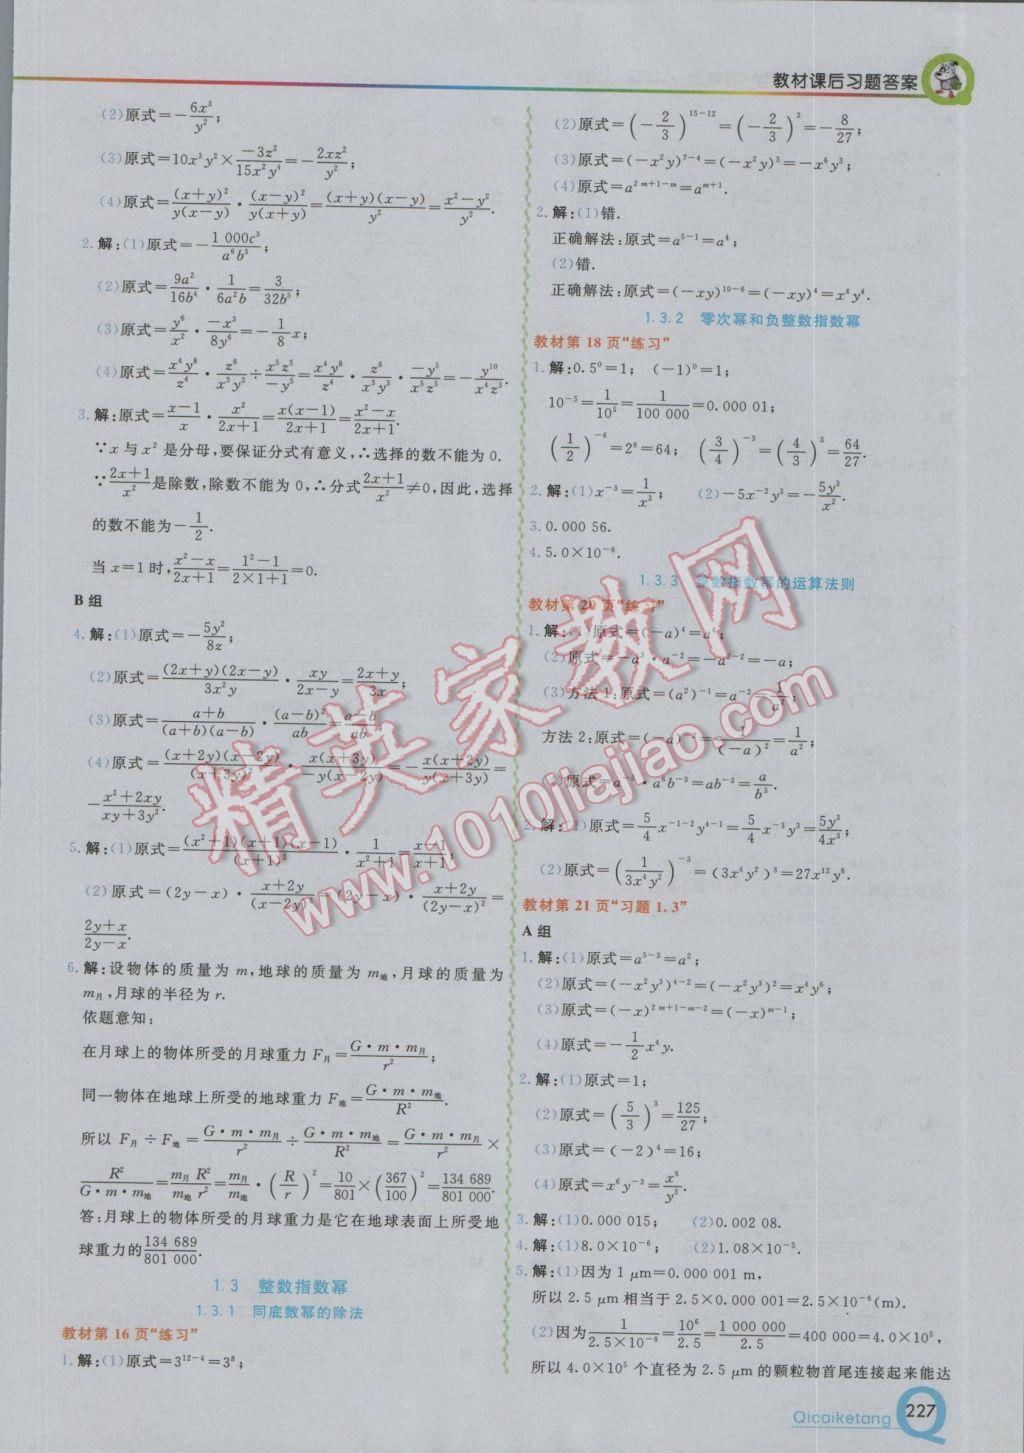 教材课后习题答案
(2)原式=-6x³/y²;
(3)原式=10x³y²×(-3z²)/(15x²y⁴)=-2xz²/y²;
(4)原式=(x+y)²/(y(x-y))·(x-y)²/(y(x+y))=(x+y)(x-y)/y²=(x²-y²)/y².
2.解:(1)原式=-1 000c³/(a⁶b³);
(2)原式=9a²/(16b⁴)·1/(6a²b)=3/(32b⁵);
(3)原式=y⁶/x²·(-x³)/(8y⁶)=-(1/8)x;
(4)原式=x⁴y⁸/z⁴·z⁶/(x³y³)÷x⁵z⁵/(-y⁵)=x⁴y⁸/z⁴·z⁶/(x³y³)·(-y⁵)/(x⁵z⁵)=-y¹⁰/(x⁴z³).
3.解:原式=(x-1)/x·x²/(2x+1)=x(x-1)/(2x+1)=(x²-x)/(2x+1).
∵x与x²是分母,要保证分式有意义,∴选择的数不能为0.
∵(2x+1)/x²是除数,除数不能为0,∴分式(2x+1)/x²≠0,因此,选择
的数不能为-1/2.
当x=1时,(x²-x)/(2x+1)=(1²-1)/(2×1+1)=0.
B组
4.解:(1)原式=-5y²/(8z);
(2)原式=(2x+y)(2x-y)/(3x²y)·xy/(2x-y)=(2x+y)/(3x);
(3)原式=(a+b)/((a+b)(a-b))·(a-b)²/(ab)=(a-b)/(ab);
(4)原式=(x+2y)(x-2y)/(x+3y)²·x(x+3y)/(-y(x-2y))=-x(x+2y)/(y(x+3y))=
-(x²+2xy)/(xy+3y²).
5.解:(1)原式=(x²+1)(x+1)(x-1)/(x+1)²·1/(x²+1)=(x-1)/(x+1);
(2)原式=(2y-x)·(x+2y)/(x-2y)²=(2y-x)·(x+2y)/(2y-x)²=
(2y+x)/(2y-x).
6.解:设物体的质量为m,地球的质量为m地,月球的质量为
m月,月球的半径为r.
依题意知:
在月球上的物体所受的月球重力F月=G·m·m月/r²;
同一物体在地球上所受的地球重力F地=G·m·m地/R².
所以F月÷F地=G·m·m月/r²÷G·m·m地/R²=G·m·m月/r²×
R²/(G·m·m地)=m月R²/(m地r²)=m月/m地·(R/r)²=10/801×(367/100)²=134 689/801 000.
答:月球上的物体所受的月球重力是它在地球表面上所受地
球重力的134 689/801 000.
1.3 整数指数幂
1.3.1 同底数幂的除法
教材第16页“练习”
1.解:(1)原式=3¹²⁻⁴=3⁸;
(2)原式=(-2/3)¹⁵⁻¹²=(-2/3)³=-8/27;
(3)原式=(-x²y)⁷⁻⁴=(-x²y)³=-x⁶y³;
(4)原式=a²ᵐ⁺¹⁻ᵐ=aᵐ⁺¹.
2.解:(1)错.
正确解法:原式=a⁵⁻¹=a⁴;
(2)错.
正确解法:原式=(-xy)¹⁰⁻⁶=(-xy)⁴=x⁴y⁴.
1.3.2 零次幂和负整数指数幂
教材第18页“练习”
1.解:0.5⁰=1; (-1)⁰=1;
10⁻⁵=1/10⁵=1/100 000=0.000 01;
(1/2)⁻⁶=2⁶=64; (3/4)⁻³=(4/3)³=64/27.
2.解:(1)x⁻³=1/x³; (2)-5x⁻²y³=-5y³/x².
3.0.000 56.
4.5.0×10⁻⁸.
1.3.3 整数指数幂的运算法则
教材第20页“练习”
1.解:(1)原式=(-a)⁴=a⁴;
(2)原式=-a³·a⁻²=-a³⁻²=-a;
(3)方法1:原式=(a²)⁻¹=a⁻²=1/a²;
方法2:原式=(-a)⁻²=1/(-a)²=1/a²;
(4)原式=a⁻⁵·a⁶b⁻³=ab⁻³=a/b³.
2.解:(1)原式=5/4x⁻¹⁻²y⁴⁻¹=5/4x⁻³y³=5y³/(4x³);
(2)原式=(1/(3x⁴y²))⁻³=(3x⁴y²)³=27x¹²y⁶.
教材第21页“习题1.3”
A组
1.解:(1)原式=a⁵⁻³=a²;
(2)原式=(-x²y³)⁴⁻²=(-x²y³)²=x⁴y⁶;
(3)原式=(-x)²ᵐ⁺¹⁻ᵐ⁻²=(-x)ᵐ⁻¹;
(4)原式=-1/2x⁴y.
2.解:(1)原式=1;
(2)原式=(5/3)³=125/27;
(3)原式=(-2)⁴=16;
(4)原式=x⁶y⁻³=x⁶/y³.
3.解:(1)0.000 015; (2)0.002 08.
4.解:(1)8.0×10⁻⁶; (2)1.08×10⁻⁵.
5.解:(1)因为1 μm=0.000 001 m,
所以2.5 μm相当于2.5×0.000 001=2.5×10⁻⁶(m).
(2)因为1/(2.5×10⁻⁶)=10⁶/2.5=1 000 000/2.5=400 000=4.0×10⁵,
所以4.0×10⁵个直径为2.5 μm的颗粒物首尾连接起来能达
精英家教网
www.1010jiajiao.com
Qicaiketang
227